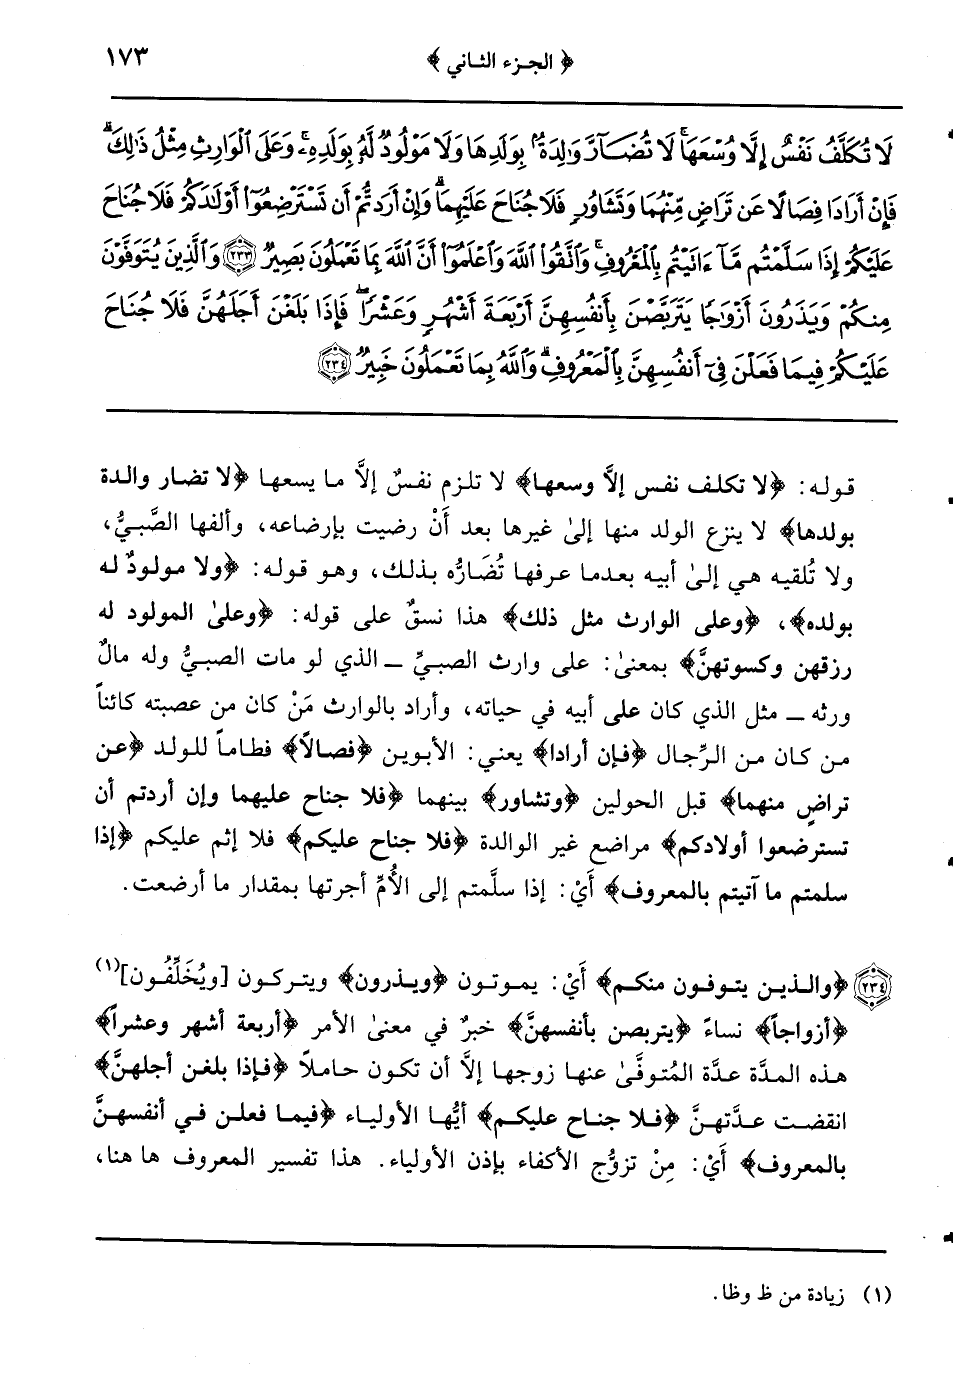 ﴿ الجزء الثاني ﴾ ١٧٣
لَا تُكَلَّفُ نَفْسٌ إِلَّا وُسْعَهَا ۚ لَا تُضَآرَّ وَٰلِدَةٌۢ بِوَلَدِهَا وَلَا مَوْلُودٌ لَّهُۥ بِوَلَدِهِۦ ۚ وَعَلَى ٱلْوَارِثِ مِثْلُ ذَٰلِكَ ۗ
فَإِنْ أَرَادَا فِصَالًا عَن تَرَاضٍ مِّنْهُمَا وَتَشَاوُرٍ فَلَا جُنَاحَ عَلَيْهِمَا ۗ وَإِنْ أَرَدتُّمْ أَن تَسْتَرْضِعُوٓا۟ أَوْلَٰدَكُمْ فَلَا جُنَاحَ
عَلَيْكُمْ إِذَا سَلَّمْتُم مَّآ ءَاتَيْتُم بِٱلْمَعْرُوفِ ۗ وَٱتَّقُوا۟ ٱللَّهَ وَٱعْلَمُوٓا۟ أَنَّ ٱللَّهَ بِمَا تَعْمَلُونَ بَصِيرٌ ﴿٢٣٣﴾ وَٱلَّذِينَ يُتَوَفَّوْنَ
مِنكُمْ وَيَذَرُونَ أَزْوَٰجًا يَتَرَبَّصْنَ بِأَنفُسِهِنَّ أَرْبَعَةَ أَشْهُرٍ وَعَشْرًا ۖ فَإِذَا بَلَغْنَ أَجَلَهُنَّ فَلَا جُنَاحَ
عَلَيْكُمْ فِيمَا فَعَلْنَ فِىٓ أَنفُسِهِنَّ بِٱلْمَعْرُوفِ ۗ وَٱللَّهُ بِمَا تَعْمَلُونَ خَبِيرٌ ﴿٢٣٤﴾
قوله: ﴿لا تكلف نفس إلَّا وسعها﴾ لا تلزم نفسٌ إلَّا ما يسعها ﴿لا تضار والدة
بولدها﴾ لا ينزع الولد منها إلىٰ غيرها بعد أَنْ رضيت بإرضاعه، وألفها الصَّبيُّ،
ولا تُلقيه هي إلىٰ أبيه بعدما عرفها تُضَارُّه بذلك، وهو قوله: ﴿ولا مولودٌ له
بولده﴾، ﴿وعلى الوارث مثل ذلك﴾ هذا نسقٌ على قوله: ﴿وعلىٰ المولود له
رزقهن وكسوتهنَّ﴾ بمعنىٰ: على وارث الصبيِّ ــ الذي لو مات الصبيُّ وله مالٌ
ورثه ــ مثل الذي كان على أبيه في حياته، وأراد بالوارث مَنْ كان من عصبته كائناً
من كان من الرِّجال ﴿فإن أرادا﴾ يعني: الأبوين ﴿فصالاً﴾ فطاماً للولد ﴿عن
تراضٍ منهما﴾ قبل الحولين ﴿وتشاور﴾ بينهما ﴿فلا جناح عليهما وإن أردتم أن
تسترضعوا أولادكم﴾ مراضع غير الوالدة ﴿فلا جناح عليكم﴾ فلا إثم عليكم ﴿إذا
سلمتم ما آتيتم بالمعروف﴾ أَيْ: إذا سلَّمتم إلى الأُمِّ أجرتها بمقدار ما أرضعت.
﴿٢٣٤﴾ ﴿والذين يتوفون منكم﴾ أَيْ: يموتون ﴿ويذرون﴾ ويتركون [ويُخَلِّفُون](١)
﴿أزواجاً﴾ نساءً ﴿يتربصن بأنفسهنَّ﴾ خبرٌ في معنىٰ الأمر ﴿أربعة أشهر وعشراً﴾
هذه المدَّة عدَّة المُتوفَّىٰ عنها زوجها إلَّا أن تكون حاملاً ﴿فإذا بلغن أجلهنَّ﴾
انقضت عدَّتهنَّ ﴿فلا جناح عليكم﴾ أيُّها الأولياء ﴿فيما فعلن في أنفسهنَّ
بالمعروف﴾ أَيْ: مِنْ تزوُّج الأكفاء بإذن الأولياء. هذا تفسير المعروف ها هنا،
(١) زيادة من ظ وظا.